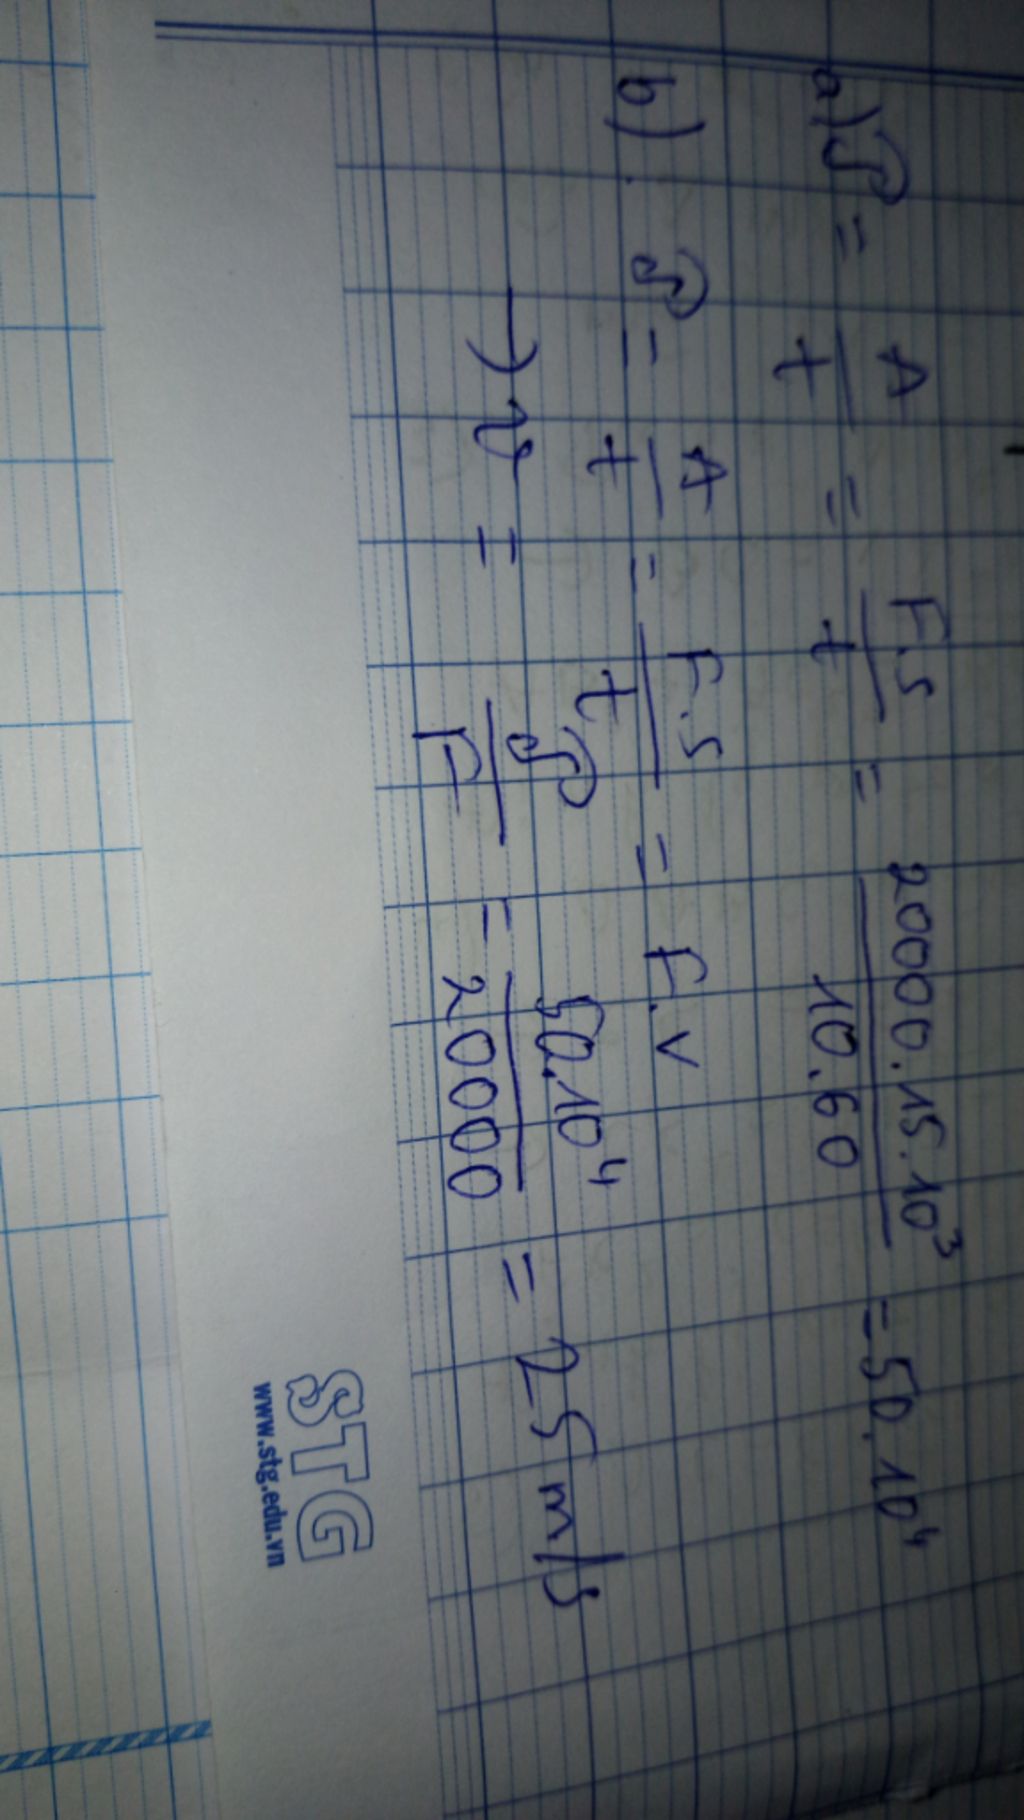 a) P = A/t = F.s/t = 20000.15.10³/10.60 = 50.10⁴
b) . P = A/t = F.s/t = F.v
→ v = P/F = 50.10⁴/20000 = 25 m/s
STG
www.stg.edu.vn